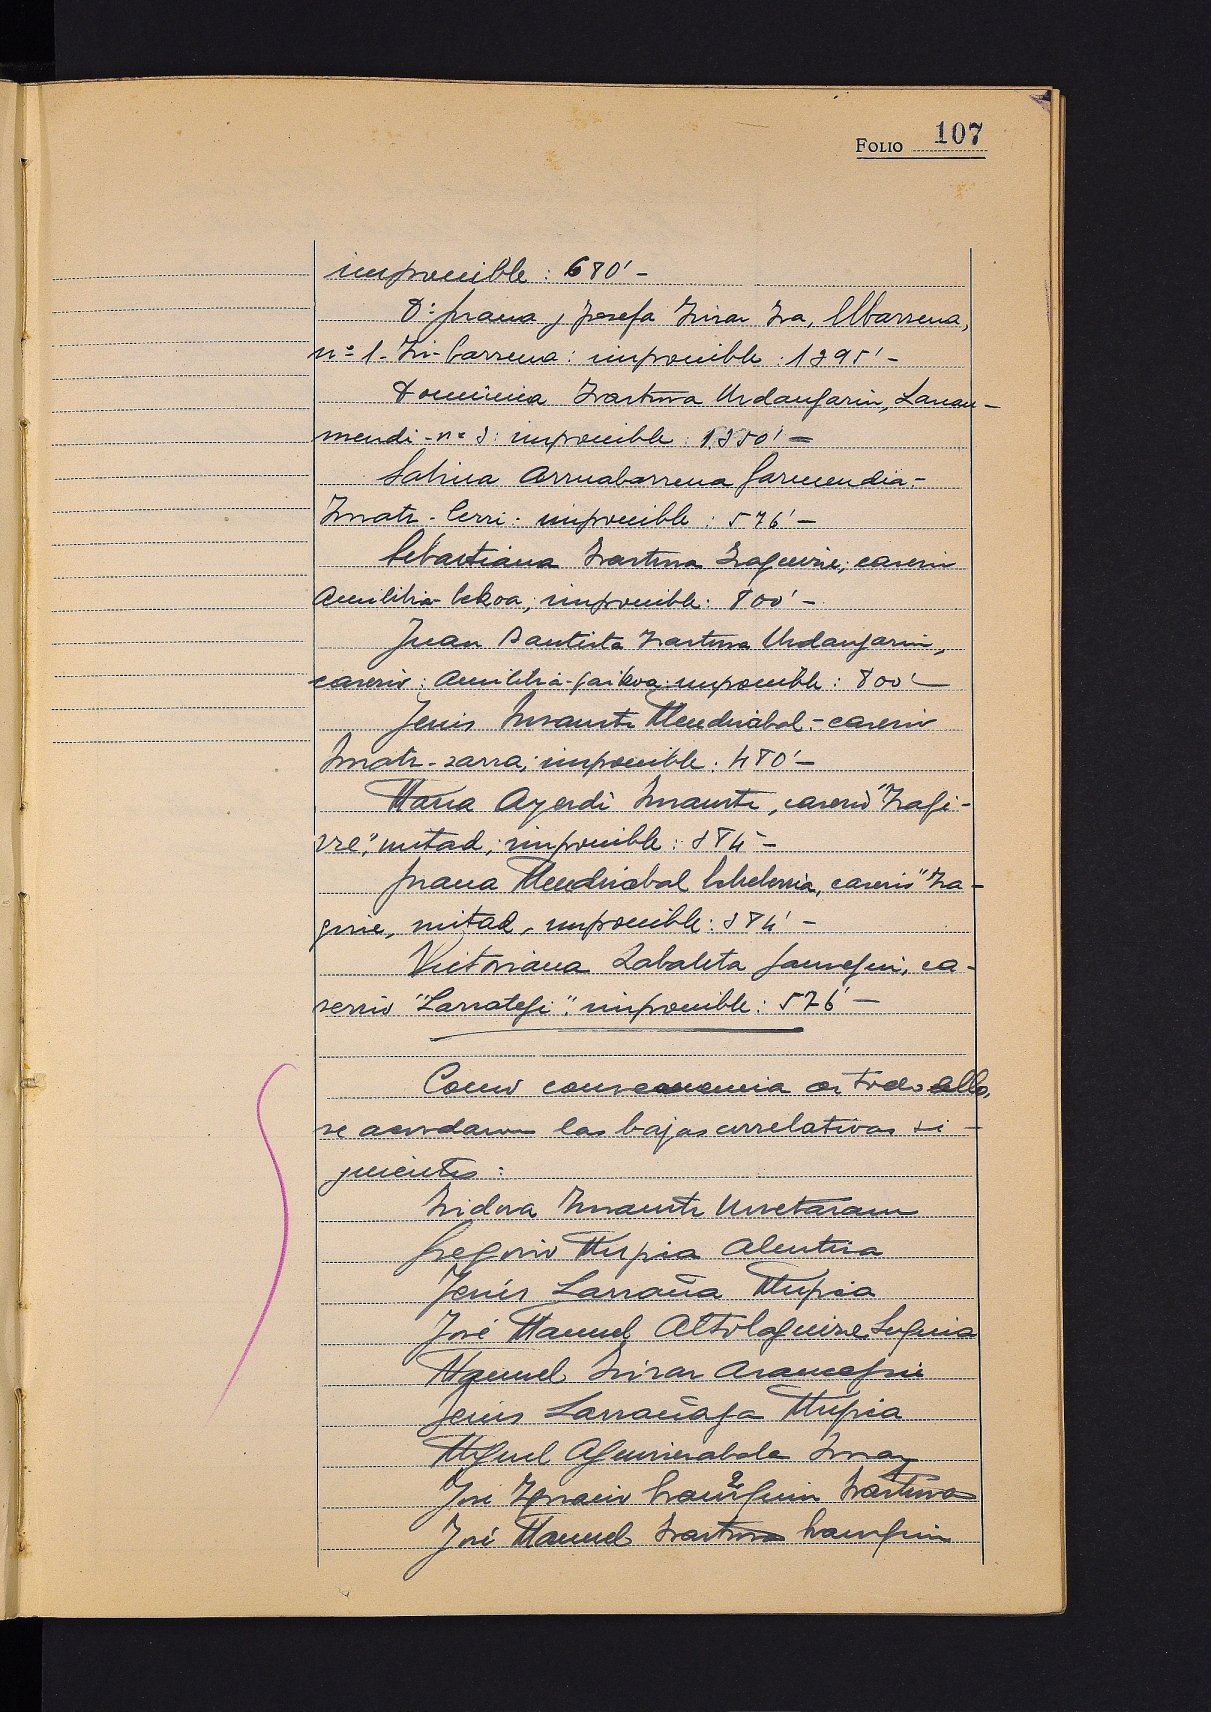 FOLIO 107
imponible: 680'-
D.ª Juana y Josefa Irizar Iza, Ubarrena,
nº 1. Iri-barrena: imponible: 1295'-
Dominica Irastorza Urdangarin, Lanau-
mendi - nº 3: imponible: 1.350'-
Sabina Arruabarrena Garmendia.-
Insatz - berri: imponible: 576'-
Sebastiana Irastorza Izaguirre, caserio
Amilibia bekoa, imponible: 800'-
Juan Bautista Irastorza Urdangarin,
caserio: Amilibia-gaikoa: imponible: 800'-
Jesús Insausti Mendizabal.- caserio
Insatz-zarra, imponible: 480'-
Maria Ayerdi Insausti, caserio "Izagi-
rre", mitad, imponible: 384'-
Juana Mendizabal Echeverria, caserio "Iza-
guirre, mitad, imponible: 384'-
Victoriana Zabaleta Jauregui, ca-
serio "Larrategi": imponible: 576'-
Como consecuencia de todo ello,
se acordaron las bajas correlativas si-
guientes:
Isidora Insausti Urretarazu
Gregorio Murgia
Jesús Larrañaga Murgia
José Manuel Altolaguirre Leguia
Manuel Irizar Aramegui
Jesus Larrañaga Murgia
Miguel Aguirrezabala
José Ignacio Irastorza
José Manuel Irastorza